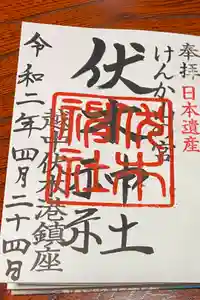 奉拝
日本遺産
けんか山宮
伏木神社
伏木神社
越中伏木港鎮座
令和二年四月二十四日